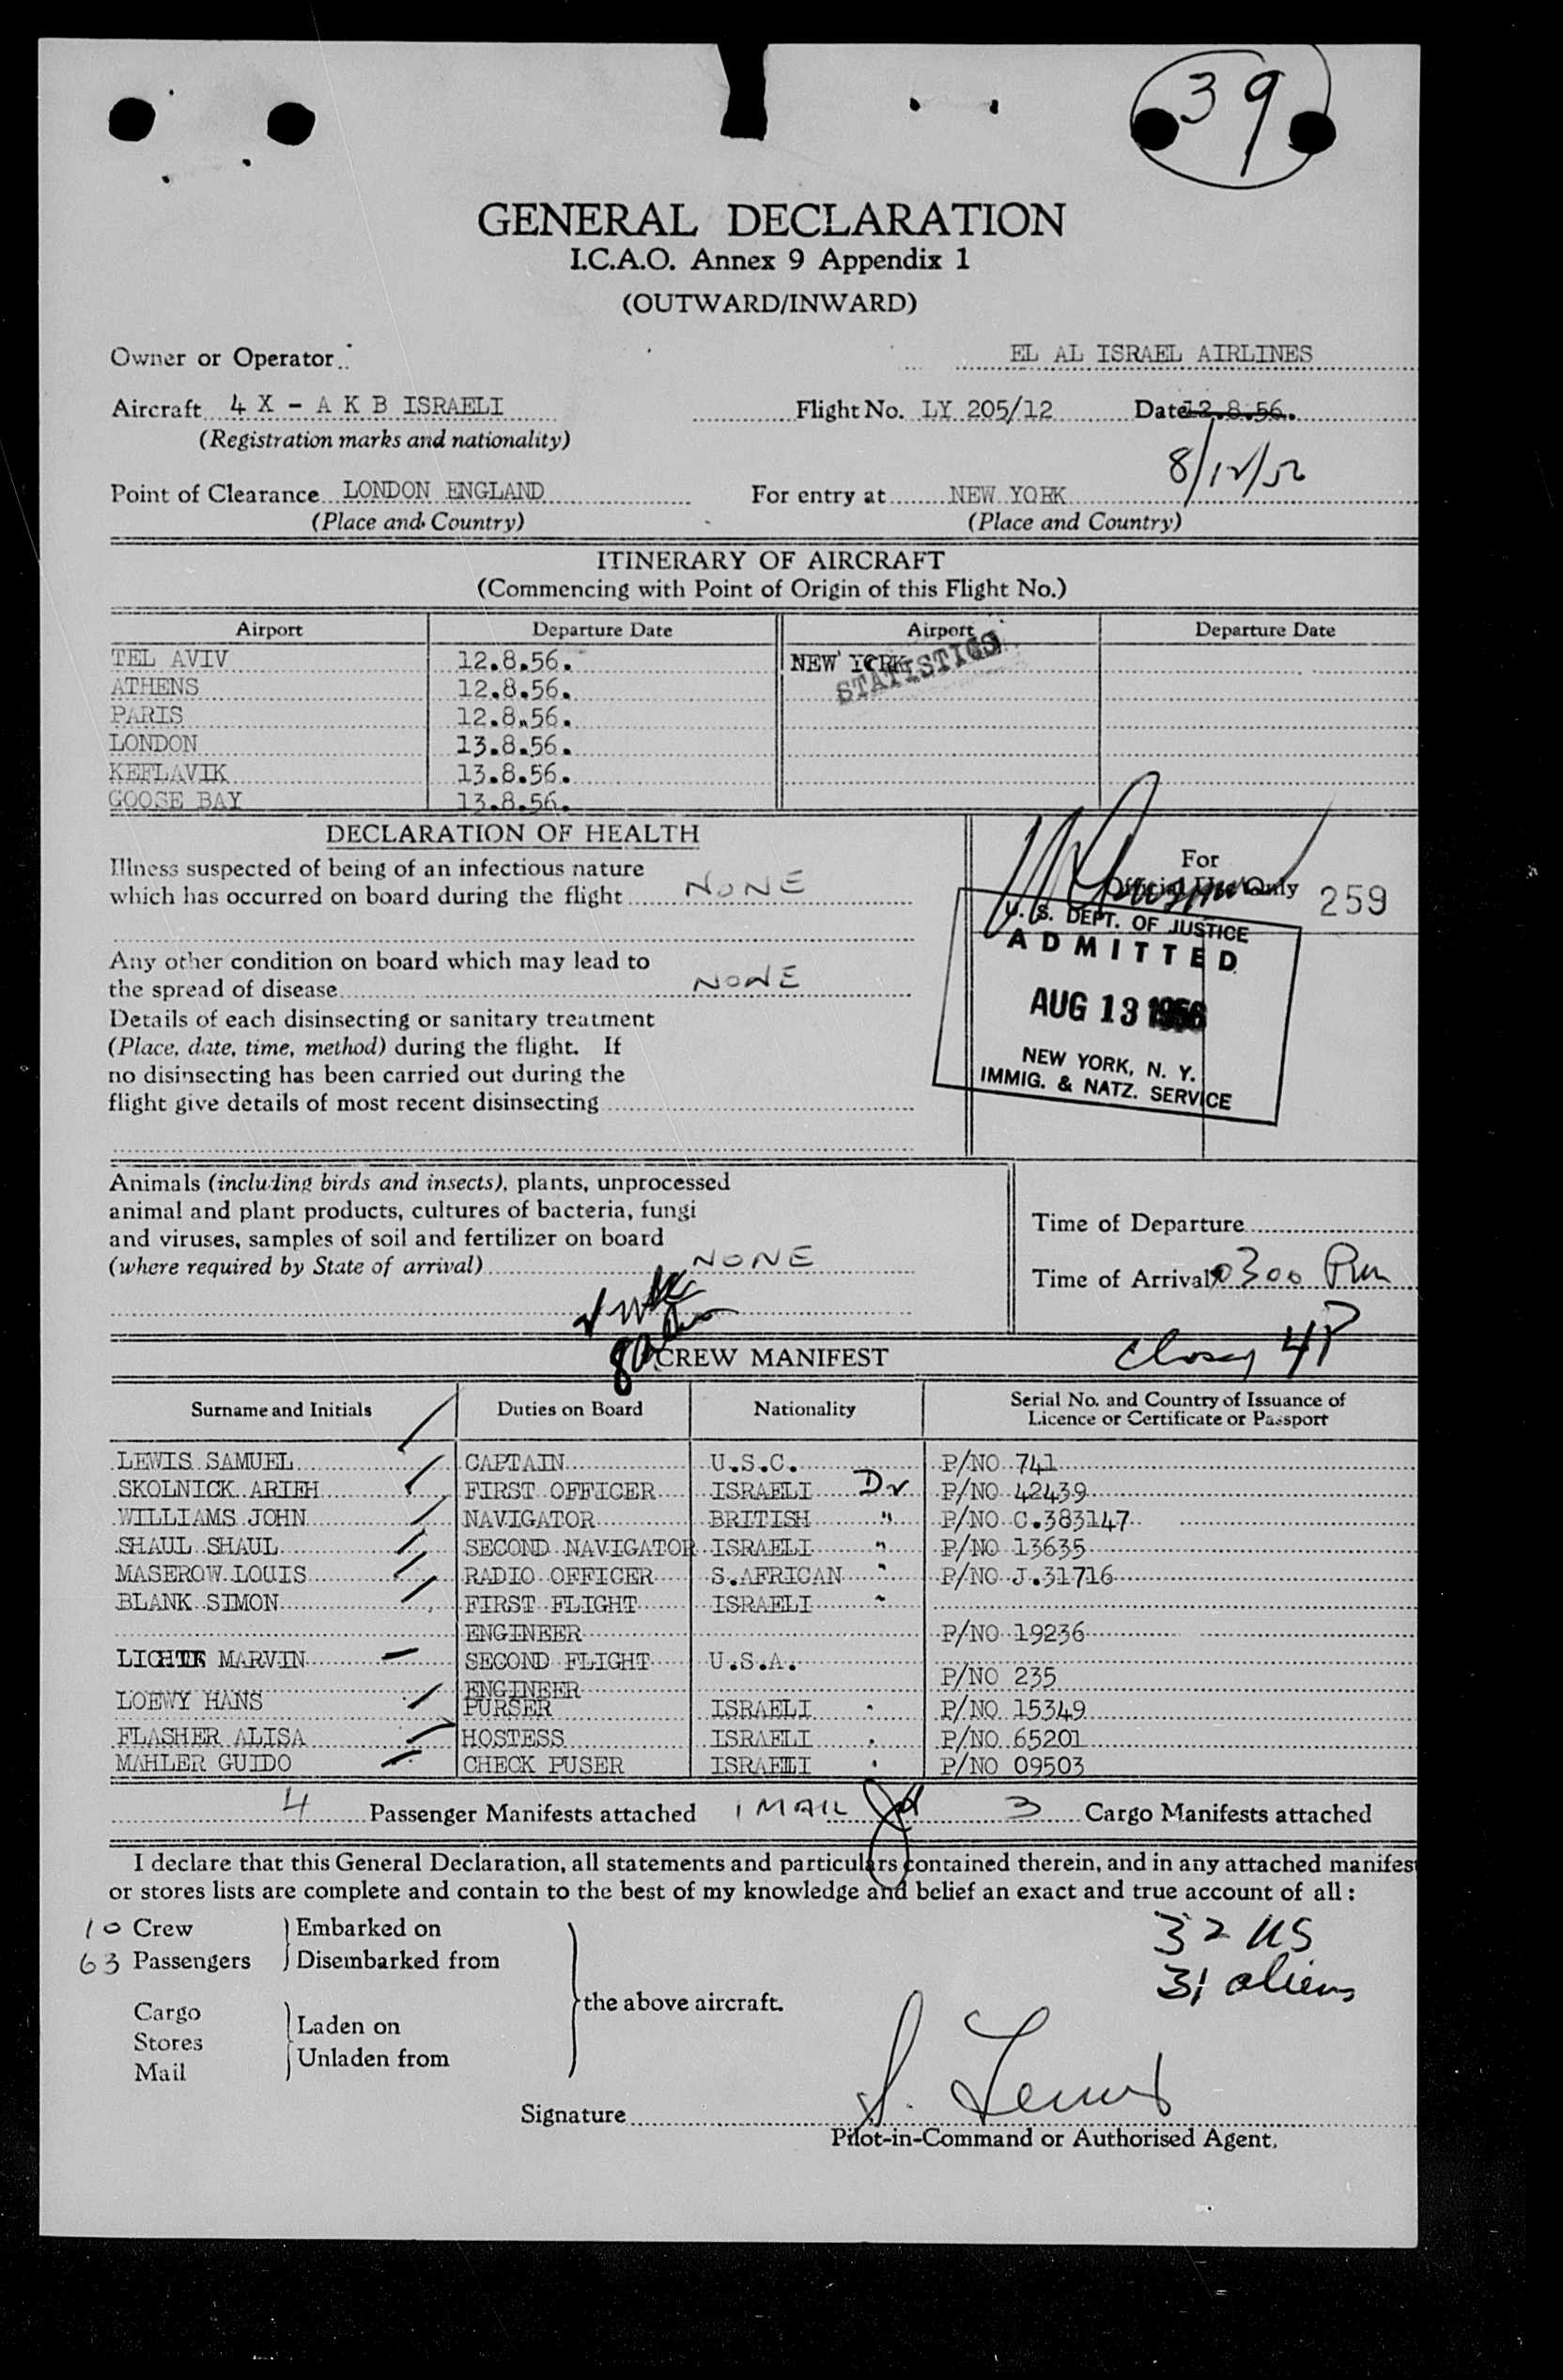 39
GENERAL DECLARATION
I.C.A.O. Annex 9 Appendix 1
(OUTWARD/INWARD)
Owner or Operator EL AL ISRAEL AIRLINES
Aircraft 4 X - A K B ISRAELI Flight No. LY 205/12 Date 12.8.56.
(Registration marks and nationality)
8/12/56
Point of Clearance LONDON ENGLAND For entry at NEW YORK
(Place and Country) (Place and Country)
ITINERARY OF AIRCRAFT
(Commencing with Point of Origin of this Flight No.)
Airport Departure Date Airport Departure Date
TEL AVIV 12.8.56. NEW YORK
STATISTICS
ATHENS 12.8.56.
PARIS 12.8.56.
LONDON 13.8.56.
KEFLAVIK 13.8.56.
GOOSE BAY 13.8.56.
DECLARATION OF HEALTH
Illness suspected of being of an infectious nature
which has occurred on board during the flight NONE
Any other condition on board which may lead to
the spread of disease NONE
Details of each disinsecting or sanitary treatment
(Place, date, time, method) during the flight. If
no disinsecting has been carried out during the
flight give details of most recent disinsecting
For
Official Use Only 259
U. S. DEPT. OF JUSTICE
ADMITTED
AUG 13 1956
NEW YORK, N. Y.
IMMIG. & NATZ. SERVICE
Animals (including birds and insects), plants, unprocessed
animal and plant products, cultures of bacteria, fungi
and viruses, samples of soil and fertilizer on board
(where required by State of arrival) NONE
Time of Departure
Time of Arrival 0300 Pm
CREW MANIFEST
4P
Surname and Initials Duties on Board Nationality Serial No. and Country of Issuance of
Licence or Certificate or Passport
LEWIS SAMUEL CAPTAIN U.S.C. P/NO 741
SKOLNICK ARIEH FIRST OFFICER ISRAELI P/NO 42439
WILLIAMS JOHN NAVIGATOR BRITISH " P/NO C.383147
SHAUL SHAUL SECOND NAVIGATOR ISRAELI " P/NO 13635
MASEROW LOUIS RADIO OFFICER S.AFRICAN " P/NO J.31716
BLANK SIMON FIRST FLIGHT ISRAELI "
ENGINEER P/NO 19236
MARVIN SECOND FLIGHT U.S.A.
ENGINEER P/NO 235
LOEWY HANS PURSER ISRAELI P/NO 15349
FLASHER ALISA HOSTESS ISRAELI P/NO 65201
MAHLER GUIDO CHECK PUSER ISRAELI P/NO 09503
4 Passenger Manifests attached 1 MAIL 3 Cargo Manifests attached
I declare that this General Declaration, all statements and particulars contained therein, and in any attached manifes
or stores lists are complete and contain to the best of my knowledge and belief an exact and true account of all :
10 Crew Embarked on
63 Passengers Disembarked from
the above aircraft.
Cargo
Stores
Mail
Laden on
Unladen from
32 US
31 aliens
Signature S. Lewis
Pilot-in-Command or Authorised Agent.